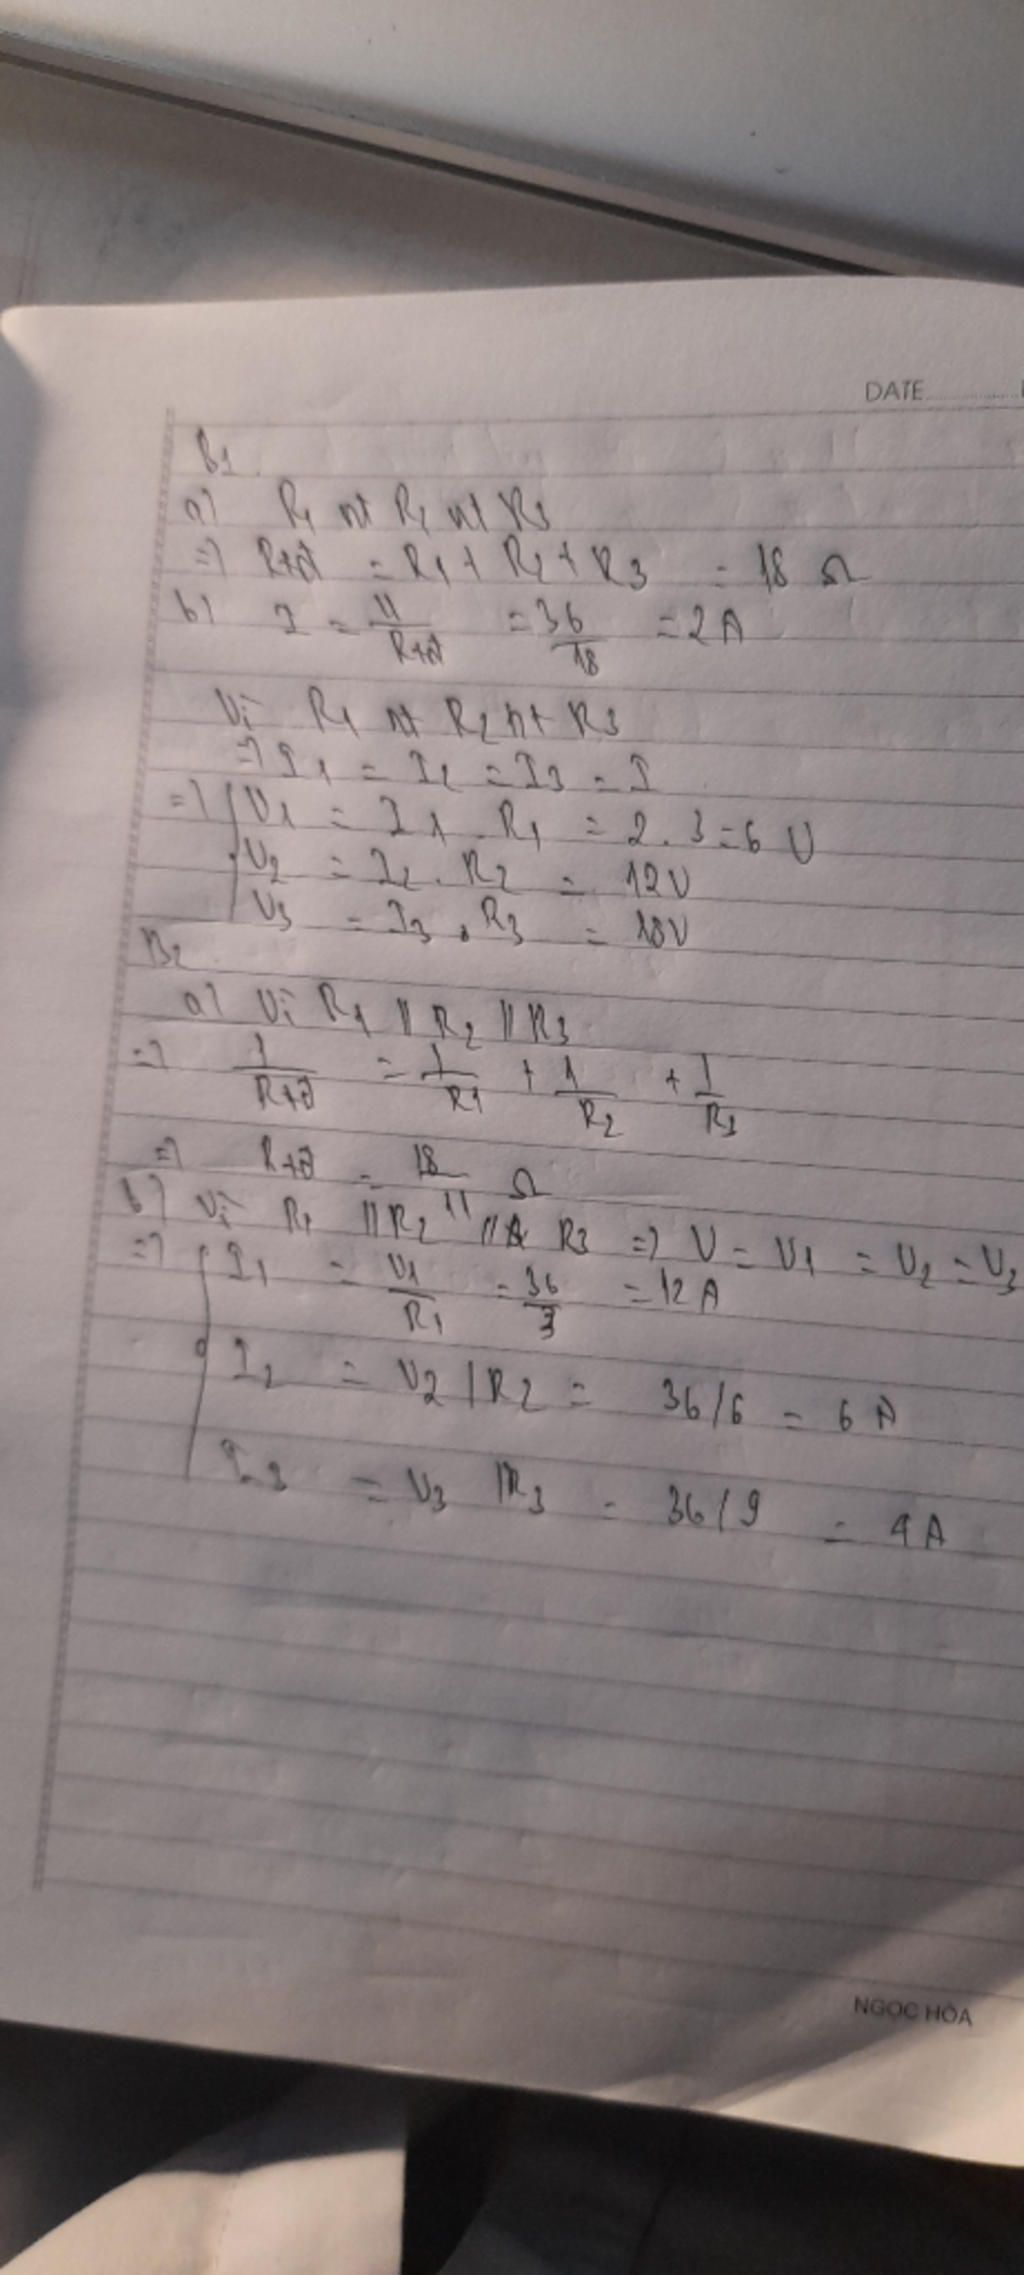 DATE
B1.
a) R1 nt R2 nt R3
=> Rtđ = R1 + R2 + R3 = 18 Ω
b) I = U/Rtđ = 36/18 = 2A
Vì R1 nt R2 nt R3
=> I1 = I2 = I3 = I
=> { U1 = I1 . R1 = 2.3 = 6 V
U2 = I2 . R2 = 12V
U3 = I3 . R3 = 18V
B2
a) Vì R1 // R2 // R3
=> 1/Rtđ = 1/R1 + 1/R2 + 1/R3
=> Rtđ = 18/11 Ω
b) Vì R1 // R2 // R3 => U = U1 = U2 = U3
=> { I1 = U1/R1 = 36/3 = 12A
I2 = U2 / R2 = 36/6 = 6A
I3 = U3 / R3 = 36/9 = 4A
NGỌC HÒA